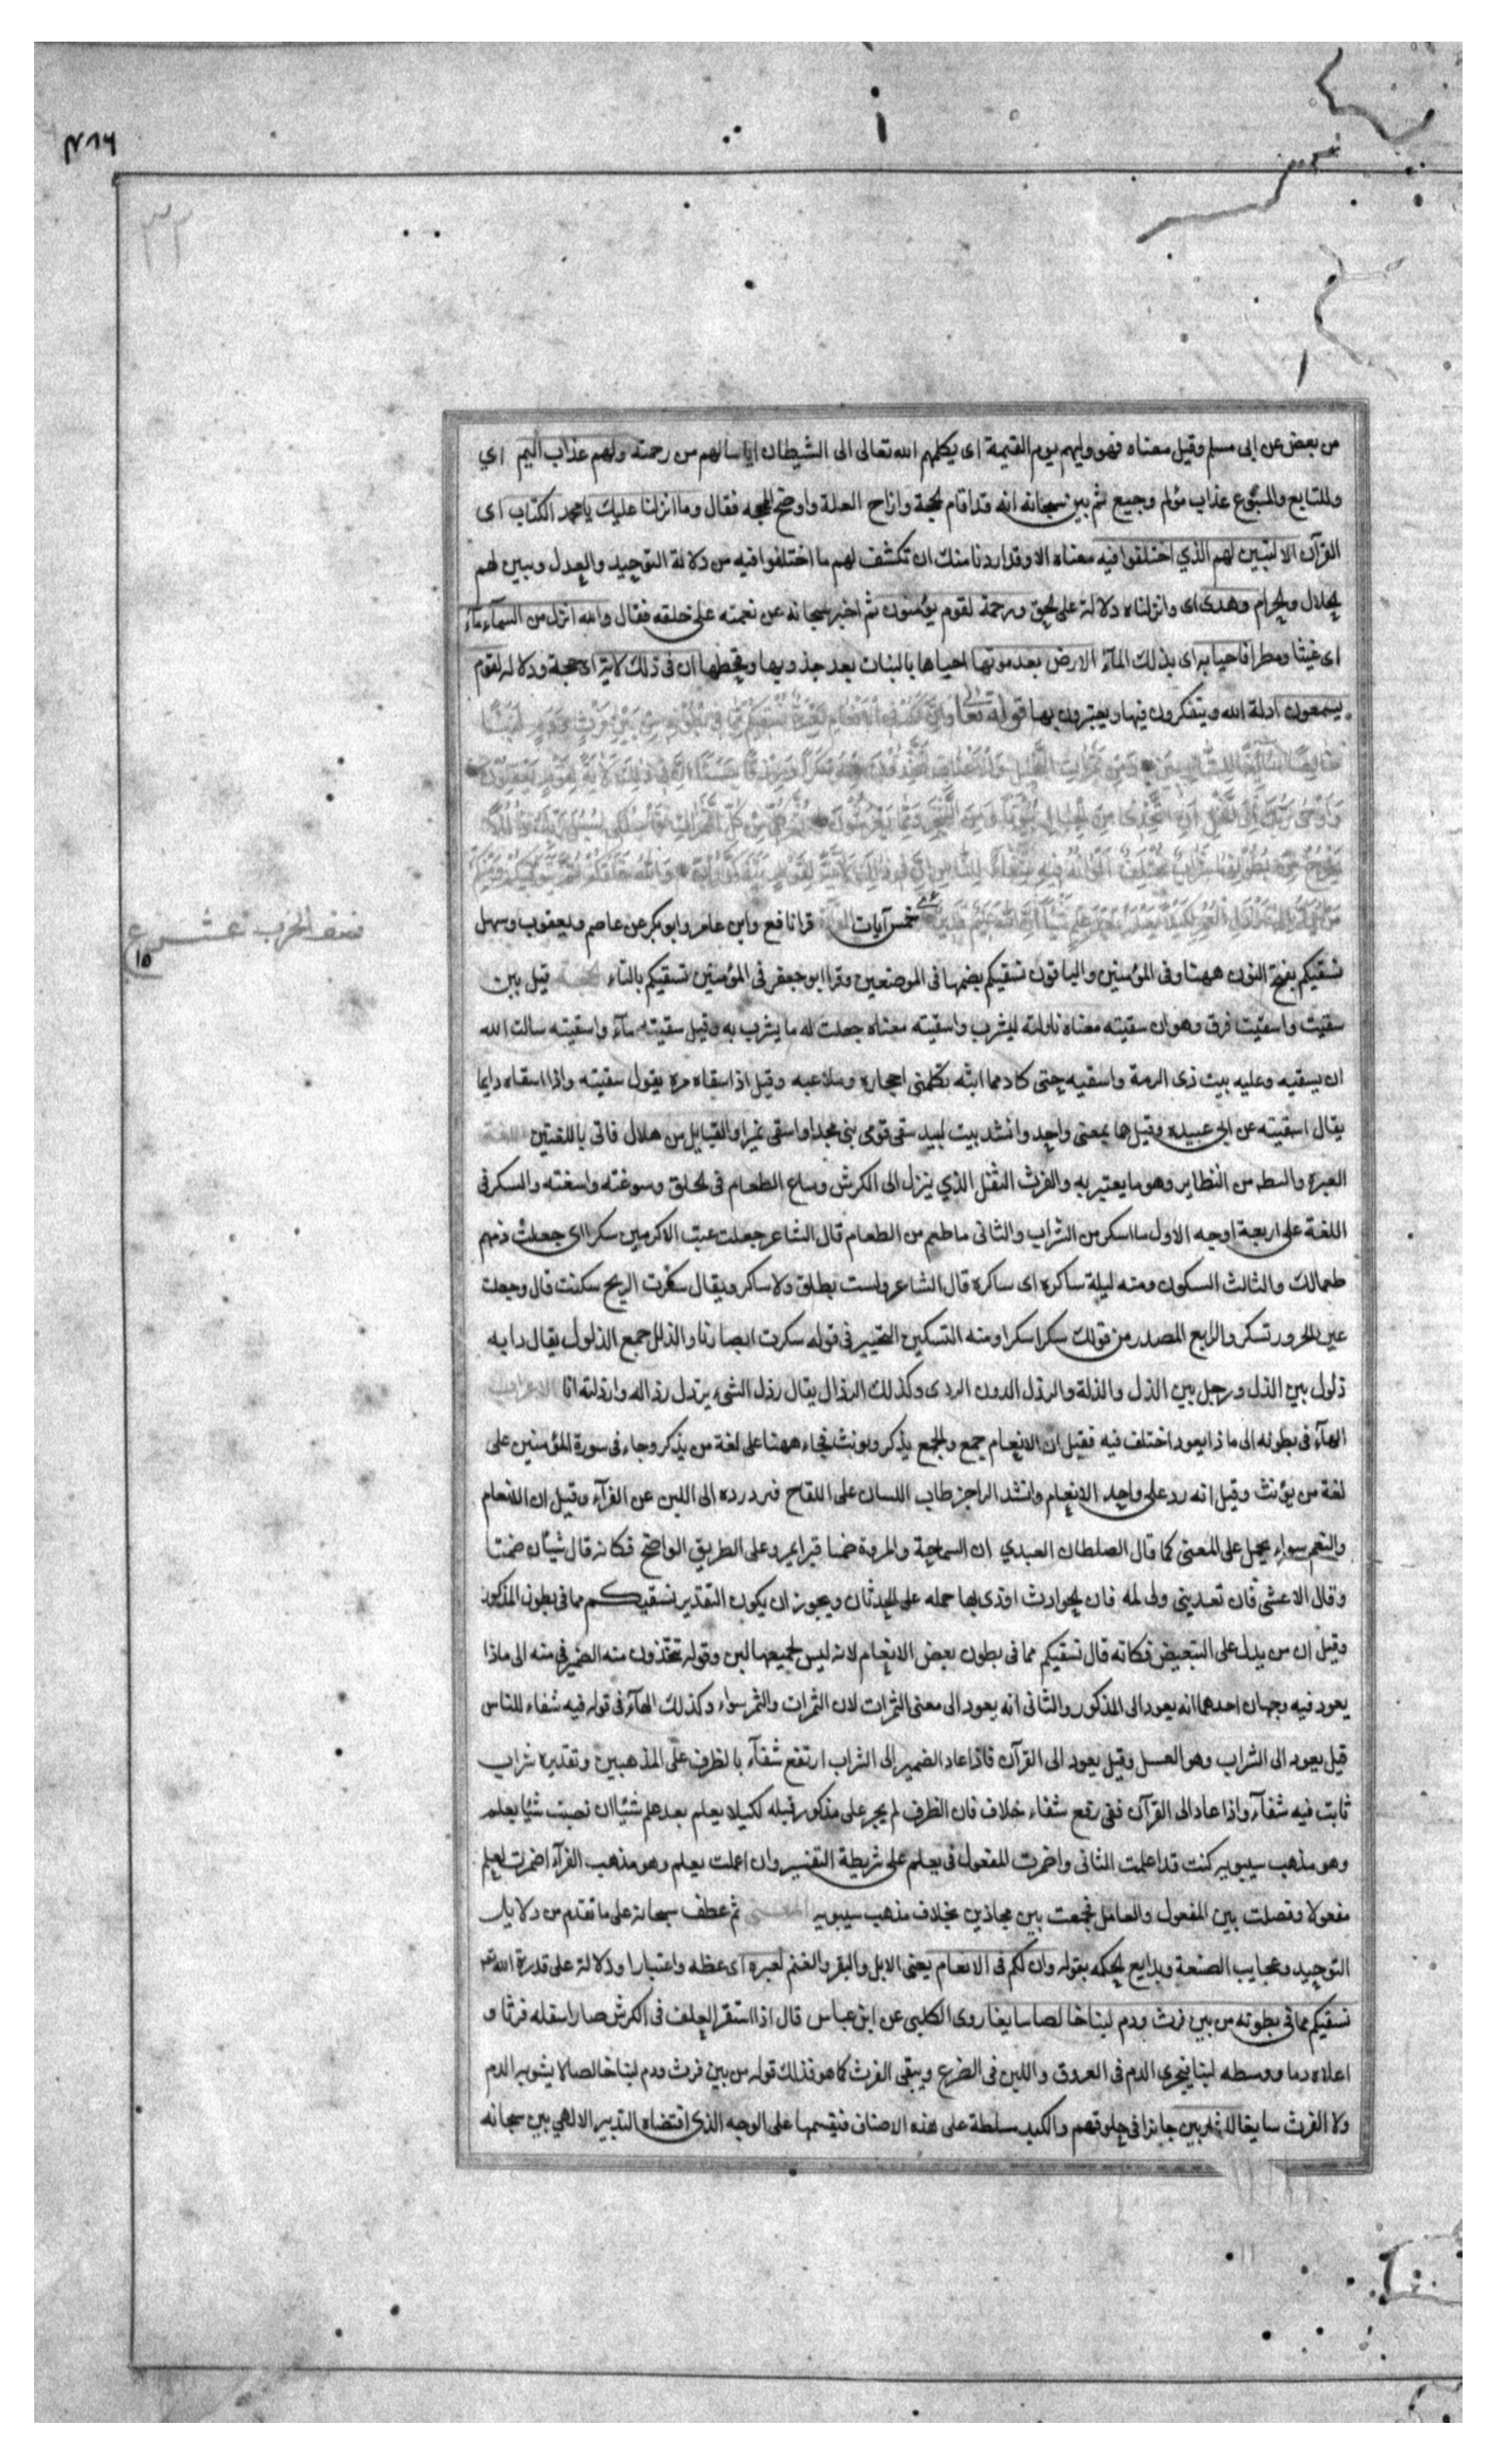 ٧٨٦
٣٢
من بعض عن ابى مسلم وقيل معناه فهو وليهم يوم القيمة اى يكلهم الله تعالى الى الشيطان اياسا لهم من رحمته ولهم عذاب اليم اي
وللتابع والمتبوع عذاب مؤلم وجيع ثم بين سبحانه انه قد اقام الحجة وازاح العلة واوضح المحجه فقال وما انزلنا عليك يا محمد الكتاب اى
القرآن الا لتبين لهم الذي اختلفوا فيه معناه الا وقد اردنا منك ان تكشف لهم ما اختلفوا فيه من دلالة التوحيد والعدل ويبين لهم
الحلال والحرام وهدى اى وانزلناه دلالة على الحق ورحمة لقوم يؤمنون ثم اخبر سبحانه عن نعمته على خلقه فقال والله انزل من السمآء مآء
اى غيثا ومطرا فاحيا به اى بذلك المآء الارض بعد موتها احياها بالنبات بعد جذوبها وقحطها ان فى ذلك لآية اى حجة ودلالة لقوم
يسمعون ادلة الله ويتفكرون فيها ويعتبرون بها قوله تعالى وان لكم فى الانعام لعبرة نسقيكم مما فى بطونه من بين فرث ودم لبنا
خالصا سائغا للشاربين ومن ثمرات النخيل والاعناب تتخذون منه سكرا ورزقا حسنا ان فى ذلك لآية لقوم يعقلون
واوحى ربك الى النحل ان اتخذى من الجبال بيوتا ومن الشجر ومما يعرشون ثم كلى من كل الثمرات فاسلكى سبل ربك ذللا
يخرج من بطونها شراب مختلف الوانه فيه شفآء للناس ان فى ذلك لآية لقوم يتفكرون والله خلقكم ثم يتوفيكم ومنكم
من يرد الى ارذل العمر لكيلا يعلم بعد علم شيئا ان الله عليم قدير خمس آيات القرآءة قرا نافع وابن عامر وابو بكر عن عاصم ويعقوب وسهل
نسقيكم بفتح النون ههنا وفى المؤمنين والباقون نسقيكم بضمها فى الموضعين وقرا ابو جعفر فى المؤمنين تسقيكم بالتاء الحجة قيل بين
سقيت واسقيت فرق وهو ان سقيته معناه ناولته ليشرب واسقيته معناه جعلت له ما يشرب به وقيل سقيته مآء واسقيته سالت الله
ان يسقيه وعليه بيت ذى الرمة واسقيه حتى كاد مما ابثه تكلمنى احجاره وملاعبه وقيل اذا سقاه مرة يقول سقيته واذا اسقاه دايما
يقال اسقيته عن ابى عبيده وقيل هما بمعنى واحد وانشد بيت لبيد سقى قومى بنى مجد واسقى نميرا والقبايل من هلال فاتى باللغتين اللغة
العبرة والعظة من النظاير وهو ما يعتبر به والفرث الثفل الذي ينزل الى الكرش وساغ الطعام فى الحلق وسوغته واسغته والسكر فى
اللغة على اربعة اوجه الاول ما اسكر من الشراب والثانى ما طعم من الطعام قال الشاعر جعلت عيب الاكرمين سكرا اى جعلت ذمهم
طعما لك والثالث السكون ومنه ليلة ساكره اى ساكنه قال الشاعر وليست بطلق ولا ساكر ويقال سكرت الريح سكنت قال وجعلت
عين الحرور تسكر والرابع المصدر من قولك سكر سكرا ومنه التسكير التحيير فى قوله سكرت ابصارنا والذلل جمع الذلول يقال دابة
ذلول بين الذل ورجل ذلول بين الذل والذلة والرذل الدون الردى وكذلك الرذال يقال رذل الشىء يرذل رذاله وارذلته انا الاعراب
الهآء فى بطونه الى ما ذا يعود اختلف فيه فقيل ان الانعام جمع والجمع يذكر ويونث فجاء ههنا على لغة من يذكر وجاء فى سورة المؤمنين على
لغة من يؤنث وقيل انه رد على واحد الانعام وانشد الراجز طاب البان اللقاح فبرد رده الى اللبن عن الفرآء وقيل ان الانعام
والنعم سواء يحمل على المعنى كما قال الصلطان العبدي ان السماحة والمروة ضمنا قبرا بمرو على الطريق الواضح فكانه قال شيئان ضمنا
وقال الاعشى فان تعهدينى ولى لمه فان الحوادث اودى بها حمله على الحدثان ويجوز ان يكون التقدير نسقيكم مما فى بطون المذكور
وقيل ان من يدل على التبعيض فكانه قال نسقيكم مما فى بطون بعض الانعام لانه ليس لجميعها لبن وقوله تتخذون منه الضمير فى منه الى ماذا
يعود فيه وجهان احدهما انه يعود الى المذكور والثانى انه يعود الى معنى الثمرات لان الثمرات والثمر سواء وكذلك الهآء فى قوله فيه شفاء للناس
قيل يعود الى الشراب وهو العسل وقيل يعود الى القرآن فاذا عاد الضمير الى الشراب ارتفع شفآء بالظرف على المذهبين وتقديره شراب
ثابت فيه شفآء واذا عاد الى القرآن ففى رفع شفاء خلاف فان الظرف لم يجر على مذكور قبله لكيلا يعلم بعد علم شيئا ان نصبت شيئا بعلم
وهو مذهب سيبويه كنت قد اعلمت الثانى واضمرت المفعول فى يعلم على شريطة التفسير وان اعملت يعلم وهو مذهب الفرآء اضمرت لعلم
مفعولا وفصلت بين المفعول والعامل فجمعت بين مجازين بخلاف مذهب سيبويه المعنى ثم عطف سبحانه على ما تقدم من دلايل
التوحيد وعجايب الصنعة وبدايع الحكمه بقوله وان لكم فى الانعام يعنى الابل والبقر والغنم لعبره اى عظة واعتبارا ودلالة على قدرة الله
نسقيكم مما فى بطونه من بين فرث ودم لبنا خالصا سايغا روى الكلبى عن ابن عباس قال اذا استقر العلف فى الكرش صار اسفله فرثا و
اعلاه دما ووسطه لبنا فيجرى الدم فى العروق واللبن فى الضرع ويبقى الفرث كما هو فذلك قوله من بين فرث ودم لبنا خالصا لا يشوبه الدم
ولا الفرث سايغا للشاربين جايزا فى حلوقهم والكبد مسلطة على هذه الاصناف فتقسمها على الوجه الذى اقتضاه التدبير الالهي بين سبحانه
نصف الحزب
١٥